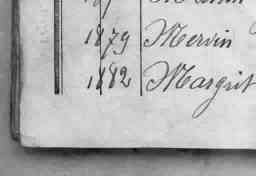 1879 Mervin
1882 Margrit